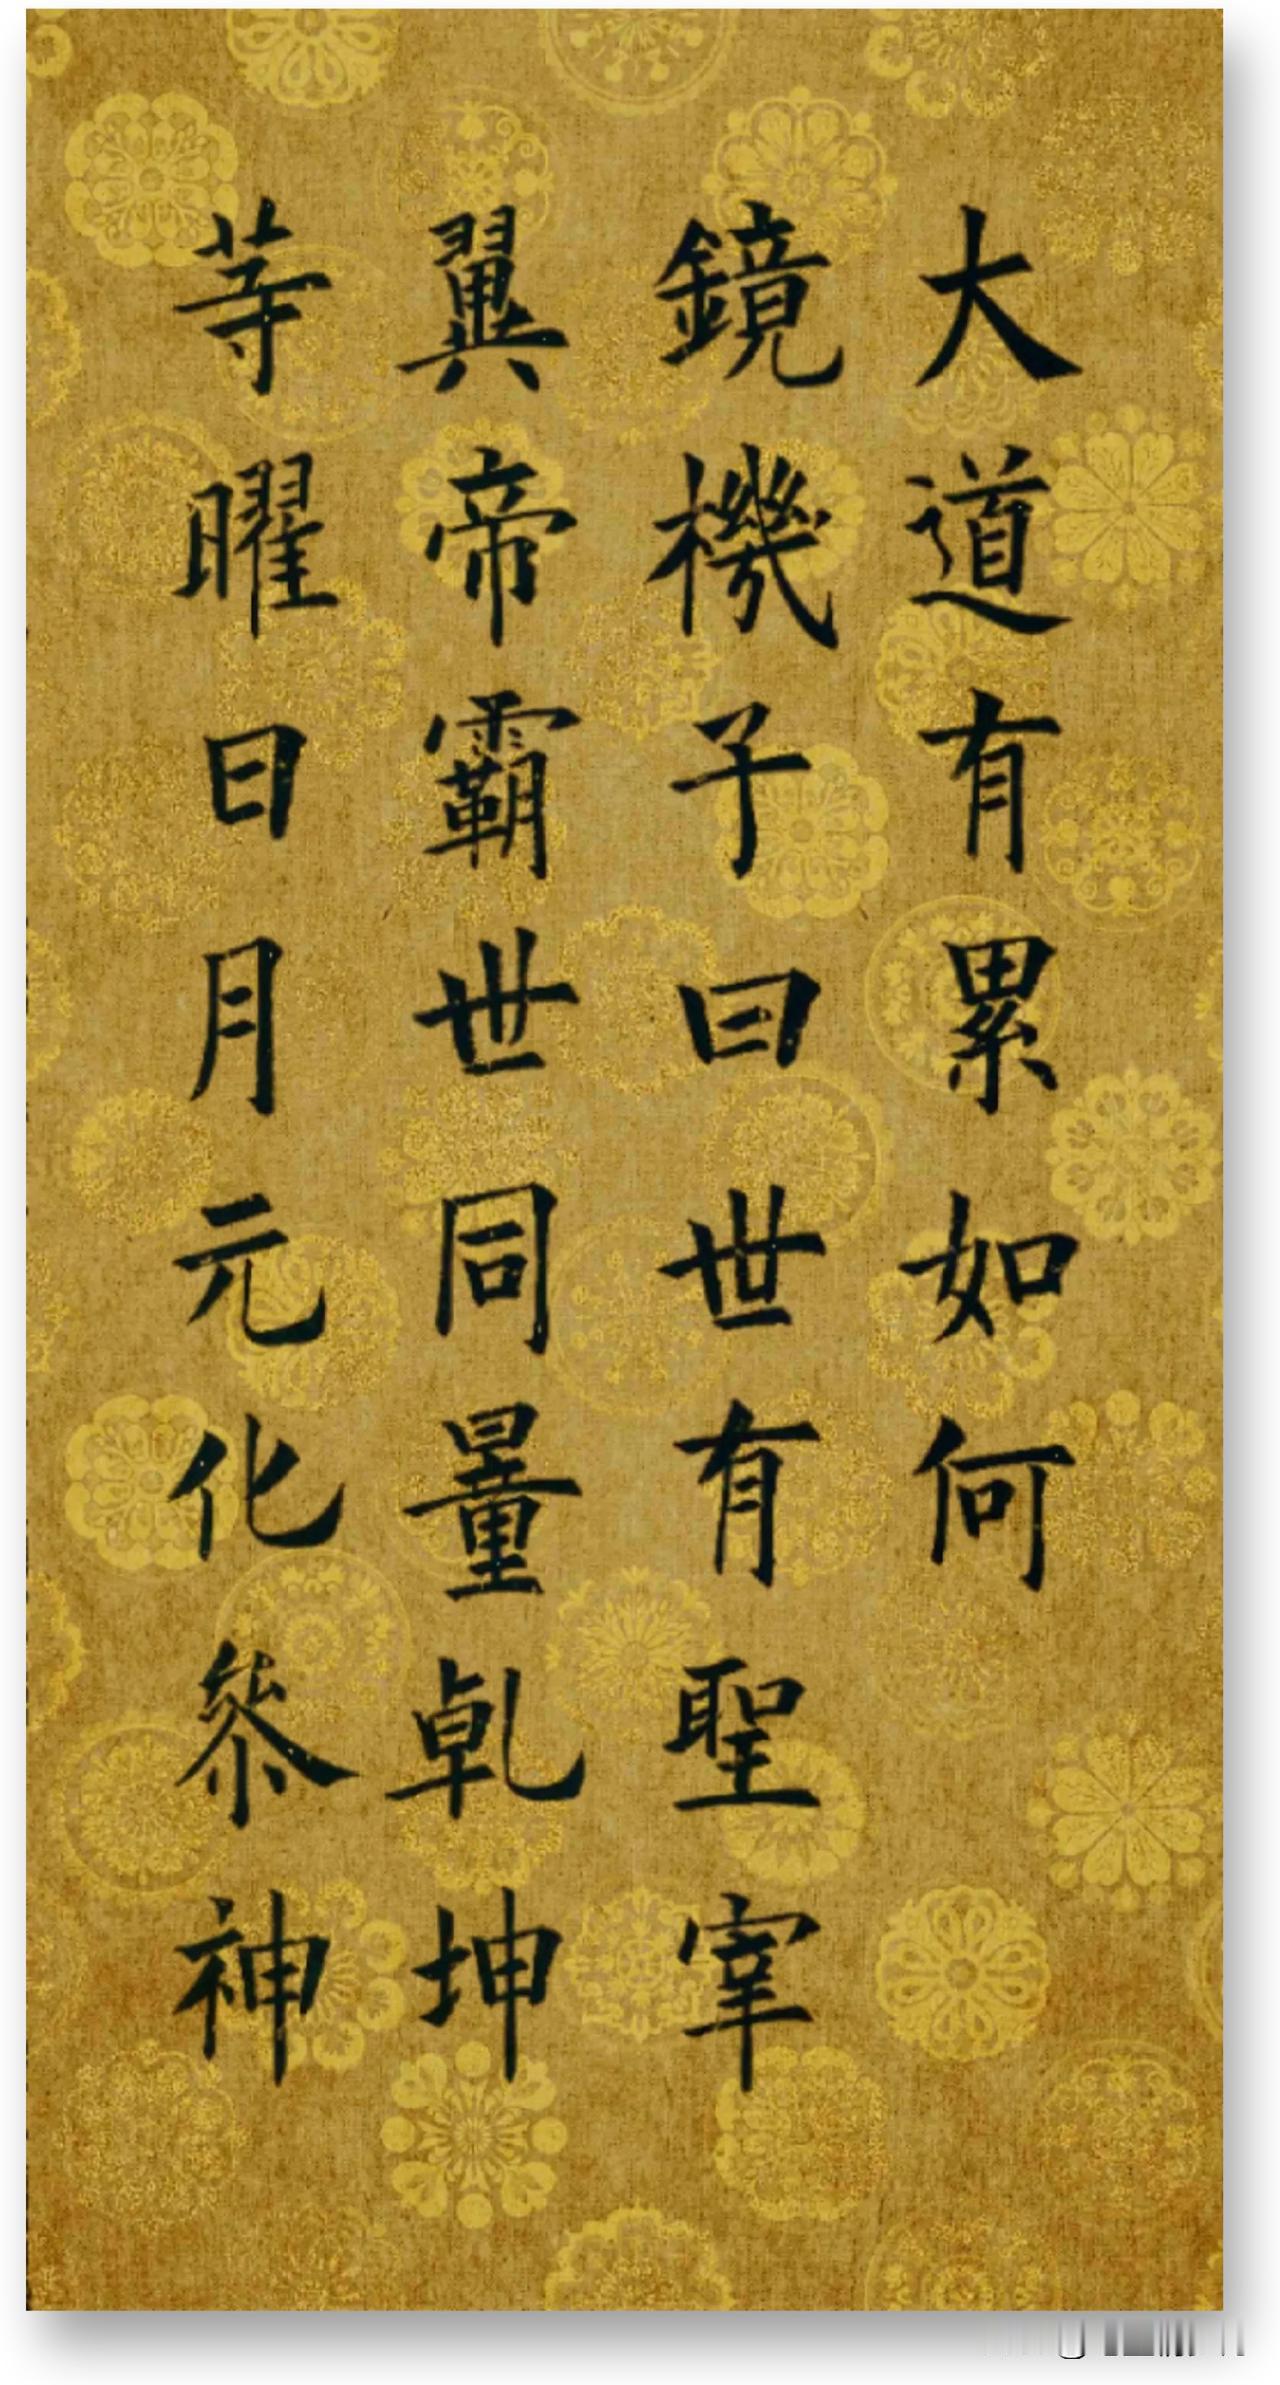 大道有累如何
鏡機子曰世有聖宰
翼帝霸世同量乹坤
等曜日月元化叅神